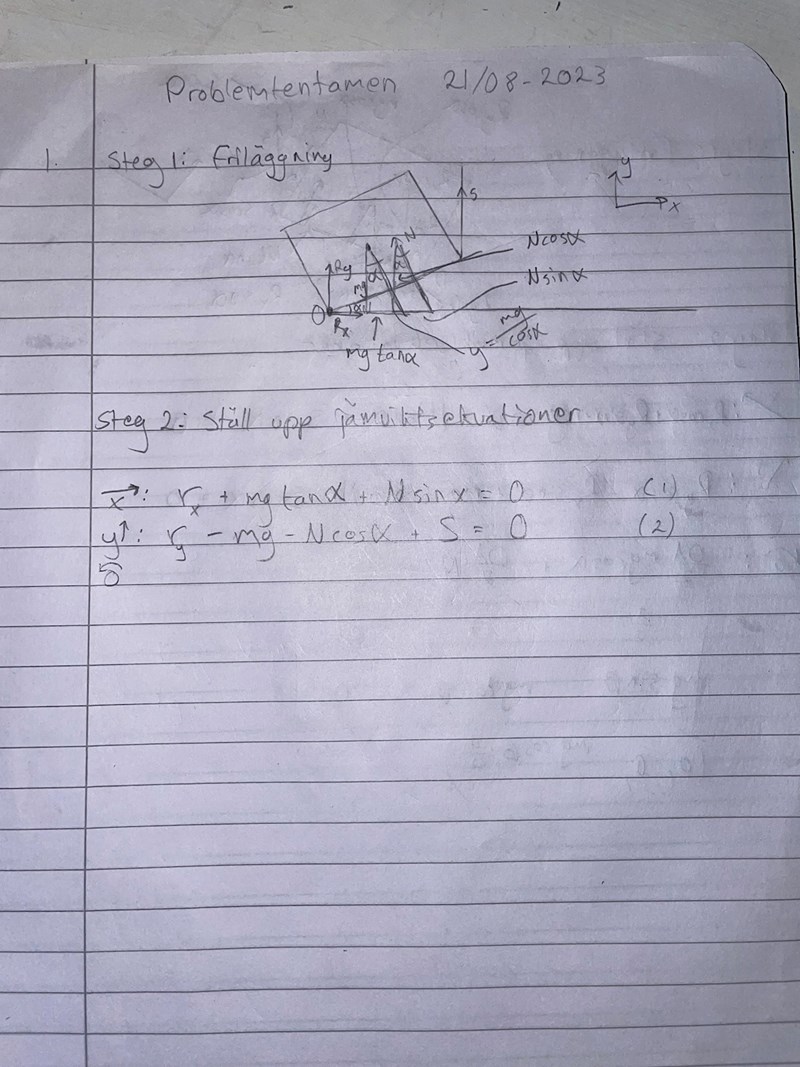 Problemtentamen 21/08-2023
1. Steg 1: Friläggning
y
x
S
N
Ncosα
Nsinα
Ry
mg
α
α
α
O
Rx
mg tanα
y = mg/cosα
Steg 2: Ställ upp jämviktsekvationer
x→: rx + mg tanα + N sin x = 0 (1)
y↑: ry - mg - N cosα + S = 0 (2)